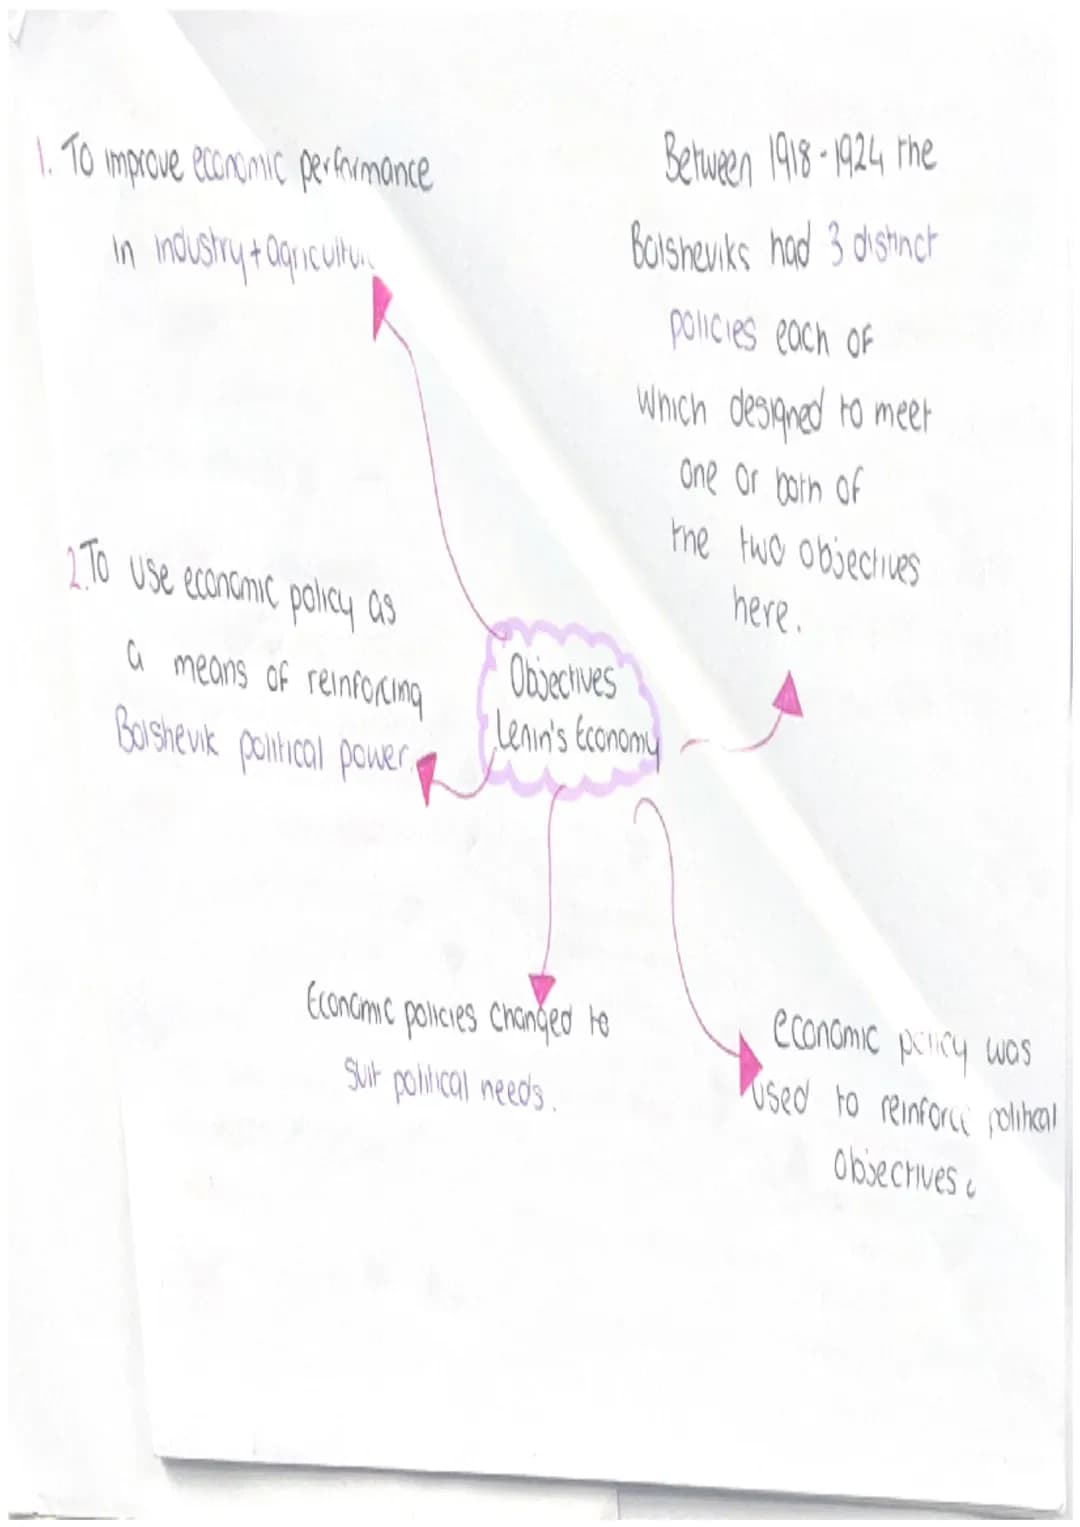 1. To improve economic performance
in industry + agriculture
Between 1918-1924 the
Bolsheviks had 3 distinct
policies each of
which designed to meet
one or both of
the two objectives
here.
2. To use economic policy as
a means of reinforcing
Bolshevik political power.
Objectives
Lenin's Economy
Economic policies changed to
suit political needs.
economic policy was
used to reinforce political
objectives.